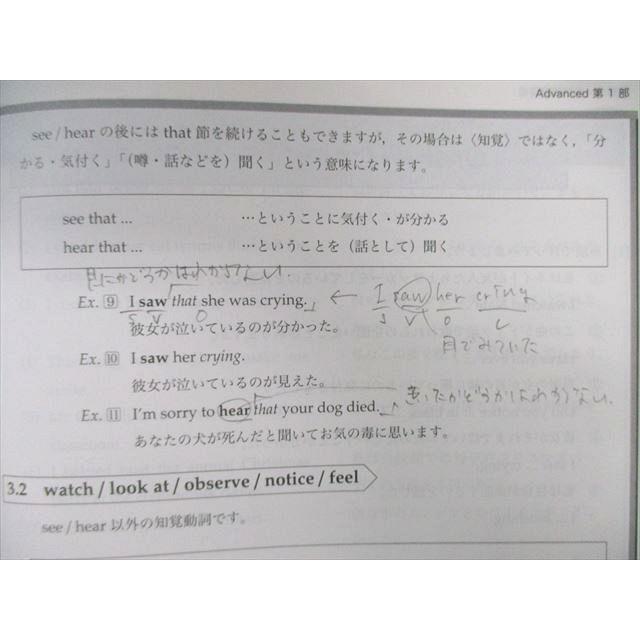 Advanced 第1部
see / hear の後には that 節を続けることもできますが，その場合は〈知覚〉ではなく，「分
かる・気付く」「（噂・話などを）聞く」という意味になります。
see that ... …ということに気付く・が分かる
hear that ... …ということを（話として）聞く
かどうかはわからない.
Ex. 9 I saw that she was crying. ← I saw her crying
S V O S V O C
彼女が泣いているのが分かった。 目でみていた
Ex. 10 I saw her crying.
彼女が泣いているのが見えた。
Ex. 11 I'm sorry to hear that your dog died. かどうかはわからない.
あなたの犬が死んだと聞いてお気の毒に思います。
3.2 watch / look at / observe / notice / feel
see / hear 以外の知覚動詞です。